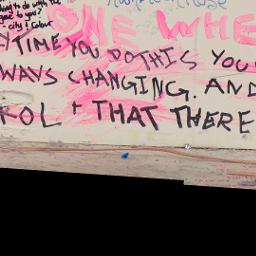 to do with the
to you?
city & Colour
ONE WHE
YTIME YOU DO THIS YOU
WAYS CHANGING. AND
ROL & THAT THERE